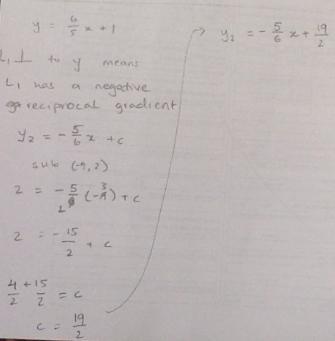 y = 6/5 x + 1
L₁ ⊥ to y means
L₁ has a negative
reciprocal gradient
y₂ = -5/6 x + c
sub (-9, 2)
2 = -5/2 (-3) + c
2 = -15/2 + c
4/2 + 15/2 = c
c = 19/2
y₂ = -5/6 x + 19/2